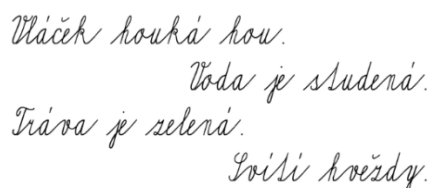 Vláček houká hou.
Voda je studená.
Tráva je zelená.
Svítí hvězdy.